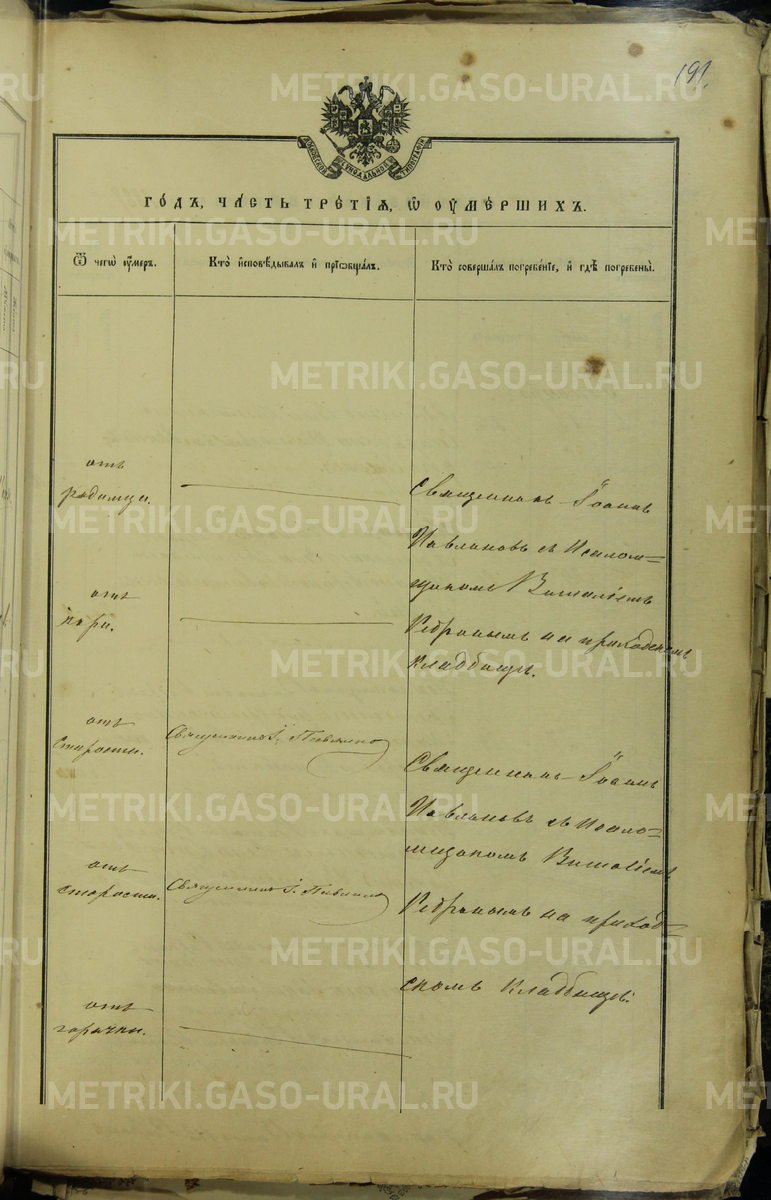 191.
МОСКОВСКОЙ СѴНОДАЛЬНОЙ ТИПОГРАФІИ
ГО́ДЪ, ЧА́СТЬ ТРЕ́ТІѦ, Ѡ҆ ОУ҆МЕ́РШИХЪ.
Ѿ чегѡ̀ ᲂу҆́меръ.
Кто̀ и҆сповѣ́дывалъ и҆ пріѡбща́лъ.
Кто̀ соверша́лъ погребе́нїе, и҆ гдѣ̀ погребены̀.
отъ
родимца.
Священникъ Іоаннъ
Павлиновъ съ Псалом=
щикомъ Виталіемъ
Ребринымъ на приходскомъ
кладбищѣ.
отъ
кори.
отъ
старости.
Священникъ І. Павлиновъ
Священникъ Іоаннъ
Павлиновъ съ Псало=
мщикомъ Виталіемъ
Ребринымъ на приход=
скомъ кладбищѣ.
отъ
старости.
Священникъ І. Павлиновъ
отъ
горячки.
METRIKI.GASO-URAL.RU